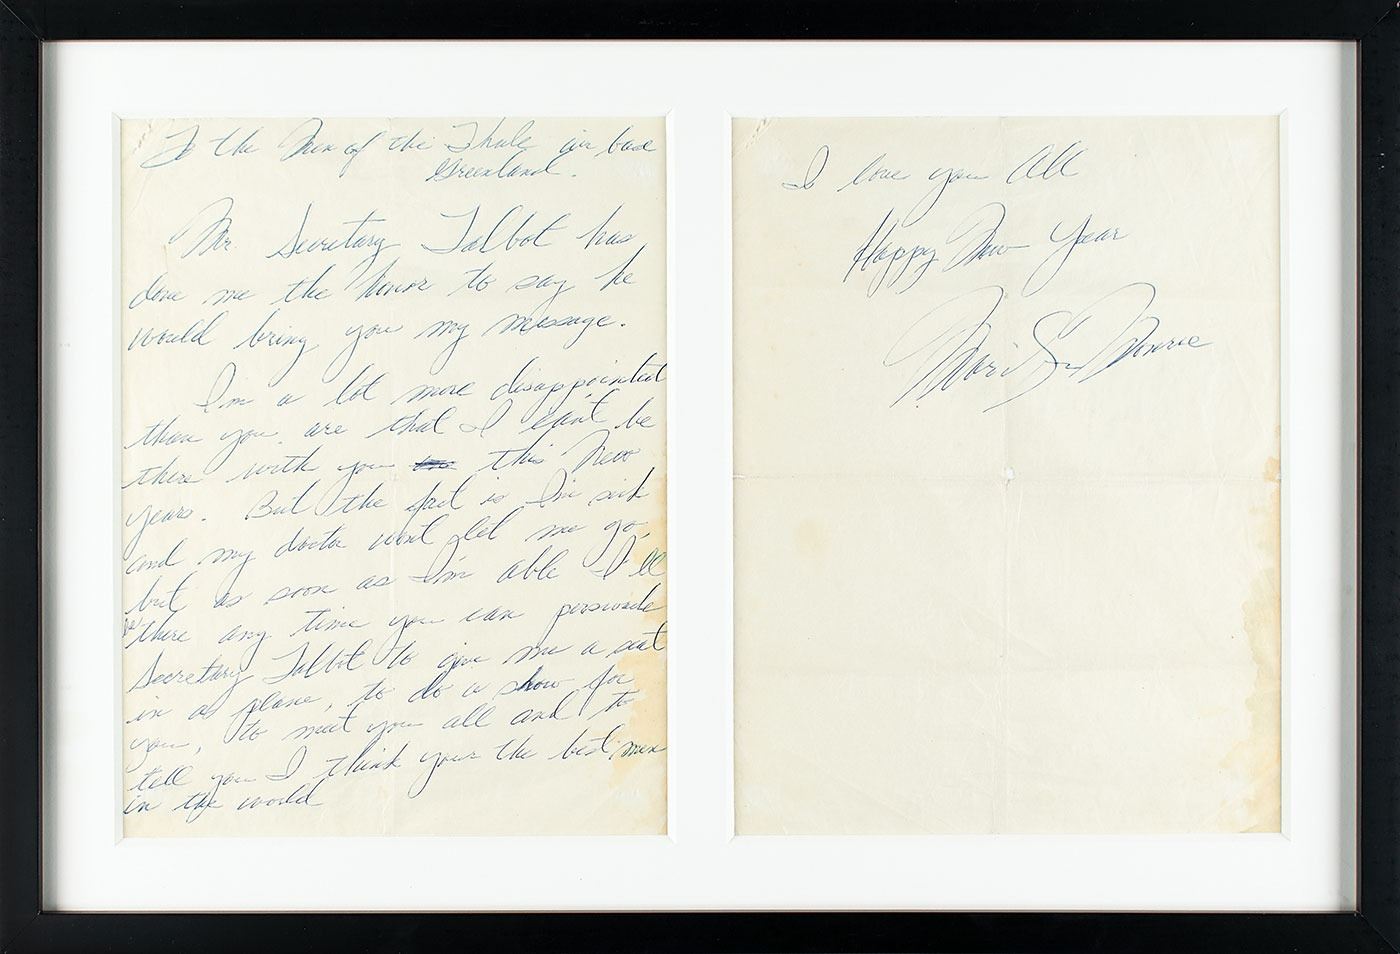 To the Men of the Thule air base
Greenland.
Mr. Secretary Talbot has
done me the honor to say he
would bring you my message.
I'm a lot more disappointed
than you are that I can't be
there with you this New
years. But the fact is I'm sick
and my doctor wont let me go
but as soon as I'm able I'll
be there any time you can perswade
Secretary Talbot to give me a seat
in a plane, to do a show for
you, to meet you all and to
tell you I think your the best men
in the world
I love you All
Happy New Year
Marilyn Monroe